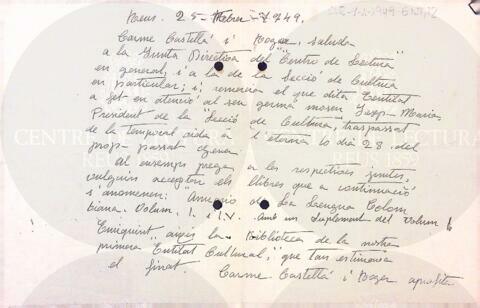 Reus. 25-Febrer-1949.
Carme Castellá i Roger, saluda
a la Junta Directiva del "Centro de Lectura"
en general, i a la de la Secció de Cultura
en particular; i, remercia el que dita Entitat
a fet en atenció al seu germá mosen Josep-Maria,
President de la Secció de Cultura, traspassat
de la temporal aida a l'eterna lo dia 28 del
prop-passat Gener.
Al ensemps prega a les respectives Juntes,
vulguin acceptar els llibres que a continuació
s'anomenen: de la Lengua Colom
biana. Volum. I. i IV. amb un Suplement del Volum
Enriquint aixís la Biblioteca de la nostra
primera "Entitat Cultural"; que tan estimava
el finat. Carme Castellá i Roger aprofita
CENTRE DE LECTURA
REUS 1859